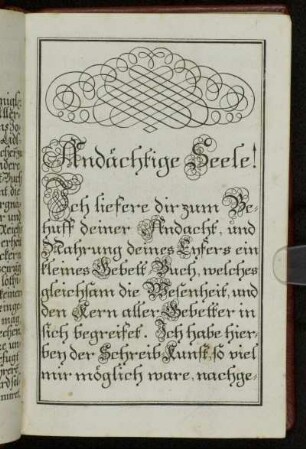 Andächtige Seele!
Ich liefere dir zum Be-
huff deiner Andacht, und
Nahrung deines Eyfers ein
kleines Gebett Buch, welches
gleichsam die Wesenheit, und
den Kern aller Gebetter in
sich begreifet. Ich habe hier-
bey der Schreib Kunst, so viel
mir möglich ware, nachge-